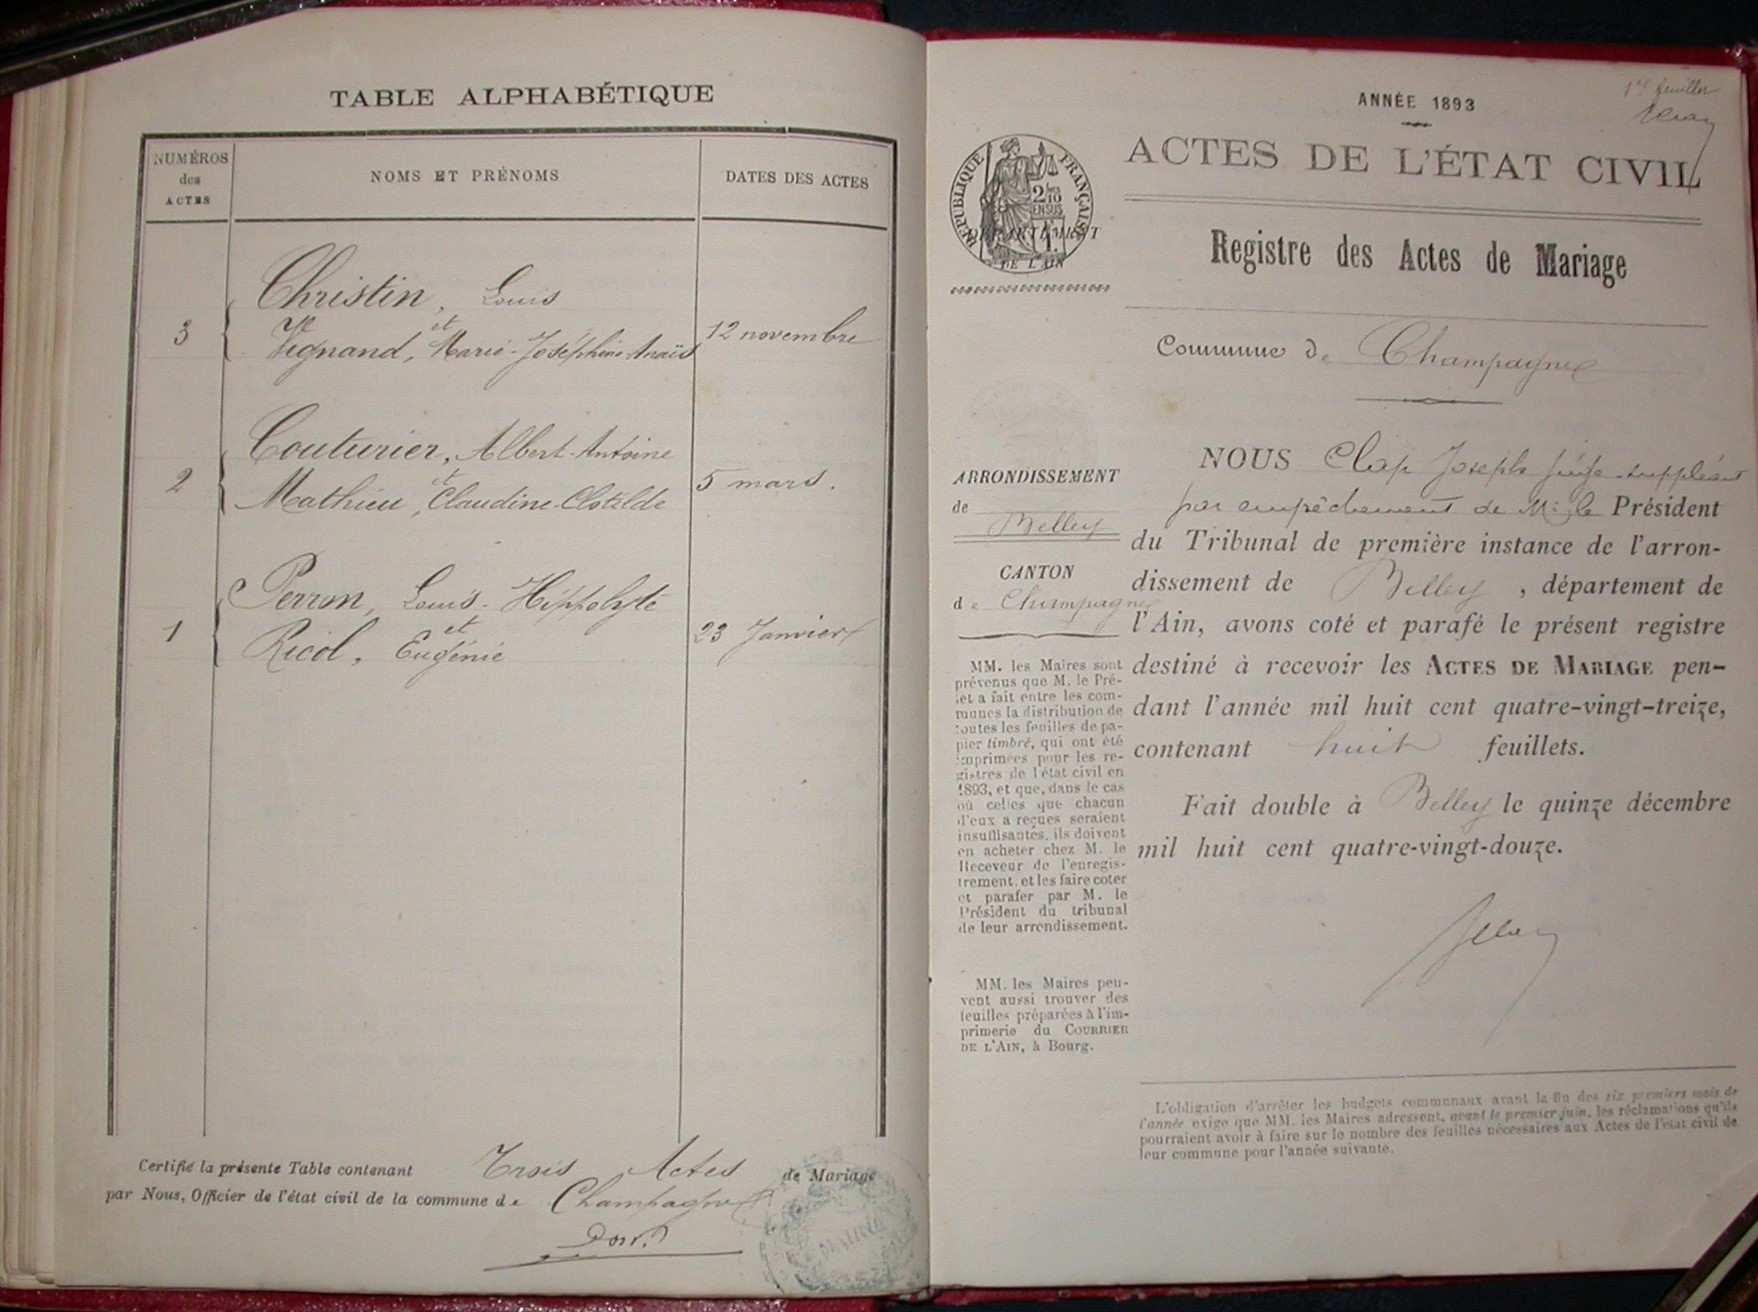 TABLE ALPHABÉTIQUE
NUMÉROS
des
ACTES
NOMS ET PRÉNOMS
DATES DES ACTES
Christin, Louis
et
3
Vignand, Marie-Joséphine Anaïs
12 novembre
Couturier, Albert-Antoine
et
2
Mathieu, Claudine-Clotilde
5 mars.
Perron, Louis-Hippolyte
et
1
Ricol, Eugénie
23 Janvier
Certifié la présente Table contenant Trois Actes de Mariage
par Nous, Officier de l'état civil de la commune de Champagne
MAIRIE
1er feuillet
ANNÉE 1893
ACTES DE L'ÉTAT CIVIL
REPUBLIQUE FRANÇAISE
2/10
EN SUS
DÉPARTEMENT
DE L'AIN
Registre des Actes de Mariage
Commune de Champagne
ARRONDISSEMENT
de Belley
CANTON
de Champagne
MM. les Maires sont
prévenus que M. le Pré-
fet a fait entre les com-
munes la distribution de
toutes les feuilles de pa-
pier timbré, qui ont été
imprimées pour les re-
gistres de l'état civil en
1893, et que, dans le cas
où celles que chacun
d'eux a reçues seraient
insuffisantes, ils doivent
en acheter chez M. le
Receveur de l'enregis-
trement, et les faire coter
et parafer par M. le
Président du tribunal
de leur arrondissement.
MM. les Maires peu-
vent aussi trouver des
feuilles préparées à l'im-
primerie du COURRIER
DE L'AIN, à Bourg.
NOUS Clap Joseph Juge-suppléant
par empêchement de Mr le Président
du Tribunal de première instance de l'arron-
dissement de Belley, département de
l'Ain, avons coté et parafé le présent registre
destiné à recevoir les ACTES DE MARIAGE pen-
dant l'année mil huit cent quatre-vingt-treize,
contenant huit feuillets.
Fait double à Belley le quinze décembre
mil huit cent quatre-vingt-douze.
L'obligation d'arrêter les budgets communaux avant la fin des six premiers mois de
l'année exige que MM. les Maires adressent, avant le premier juin, les réclamations qu'ils
pourraient avoir à faire sur le nombre des feuilles nécessaires aux Actes de l'état civil de
leur commune pour l'année suivante.